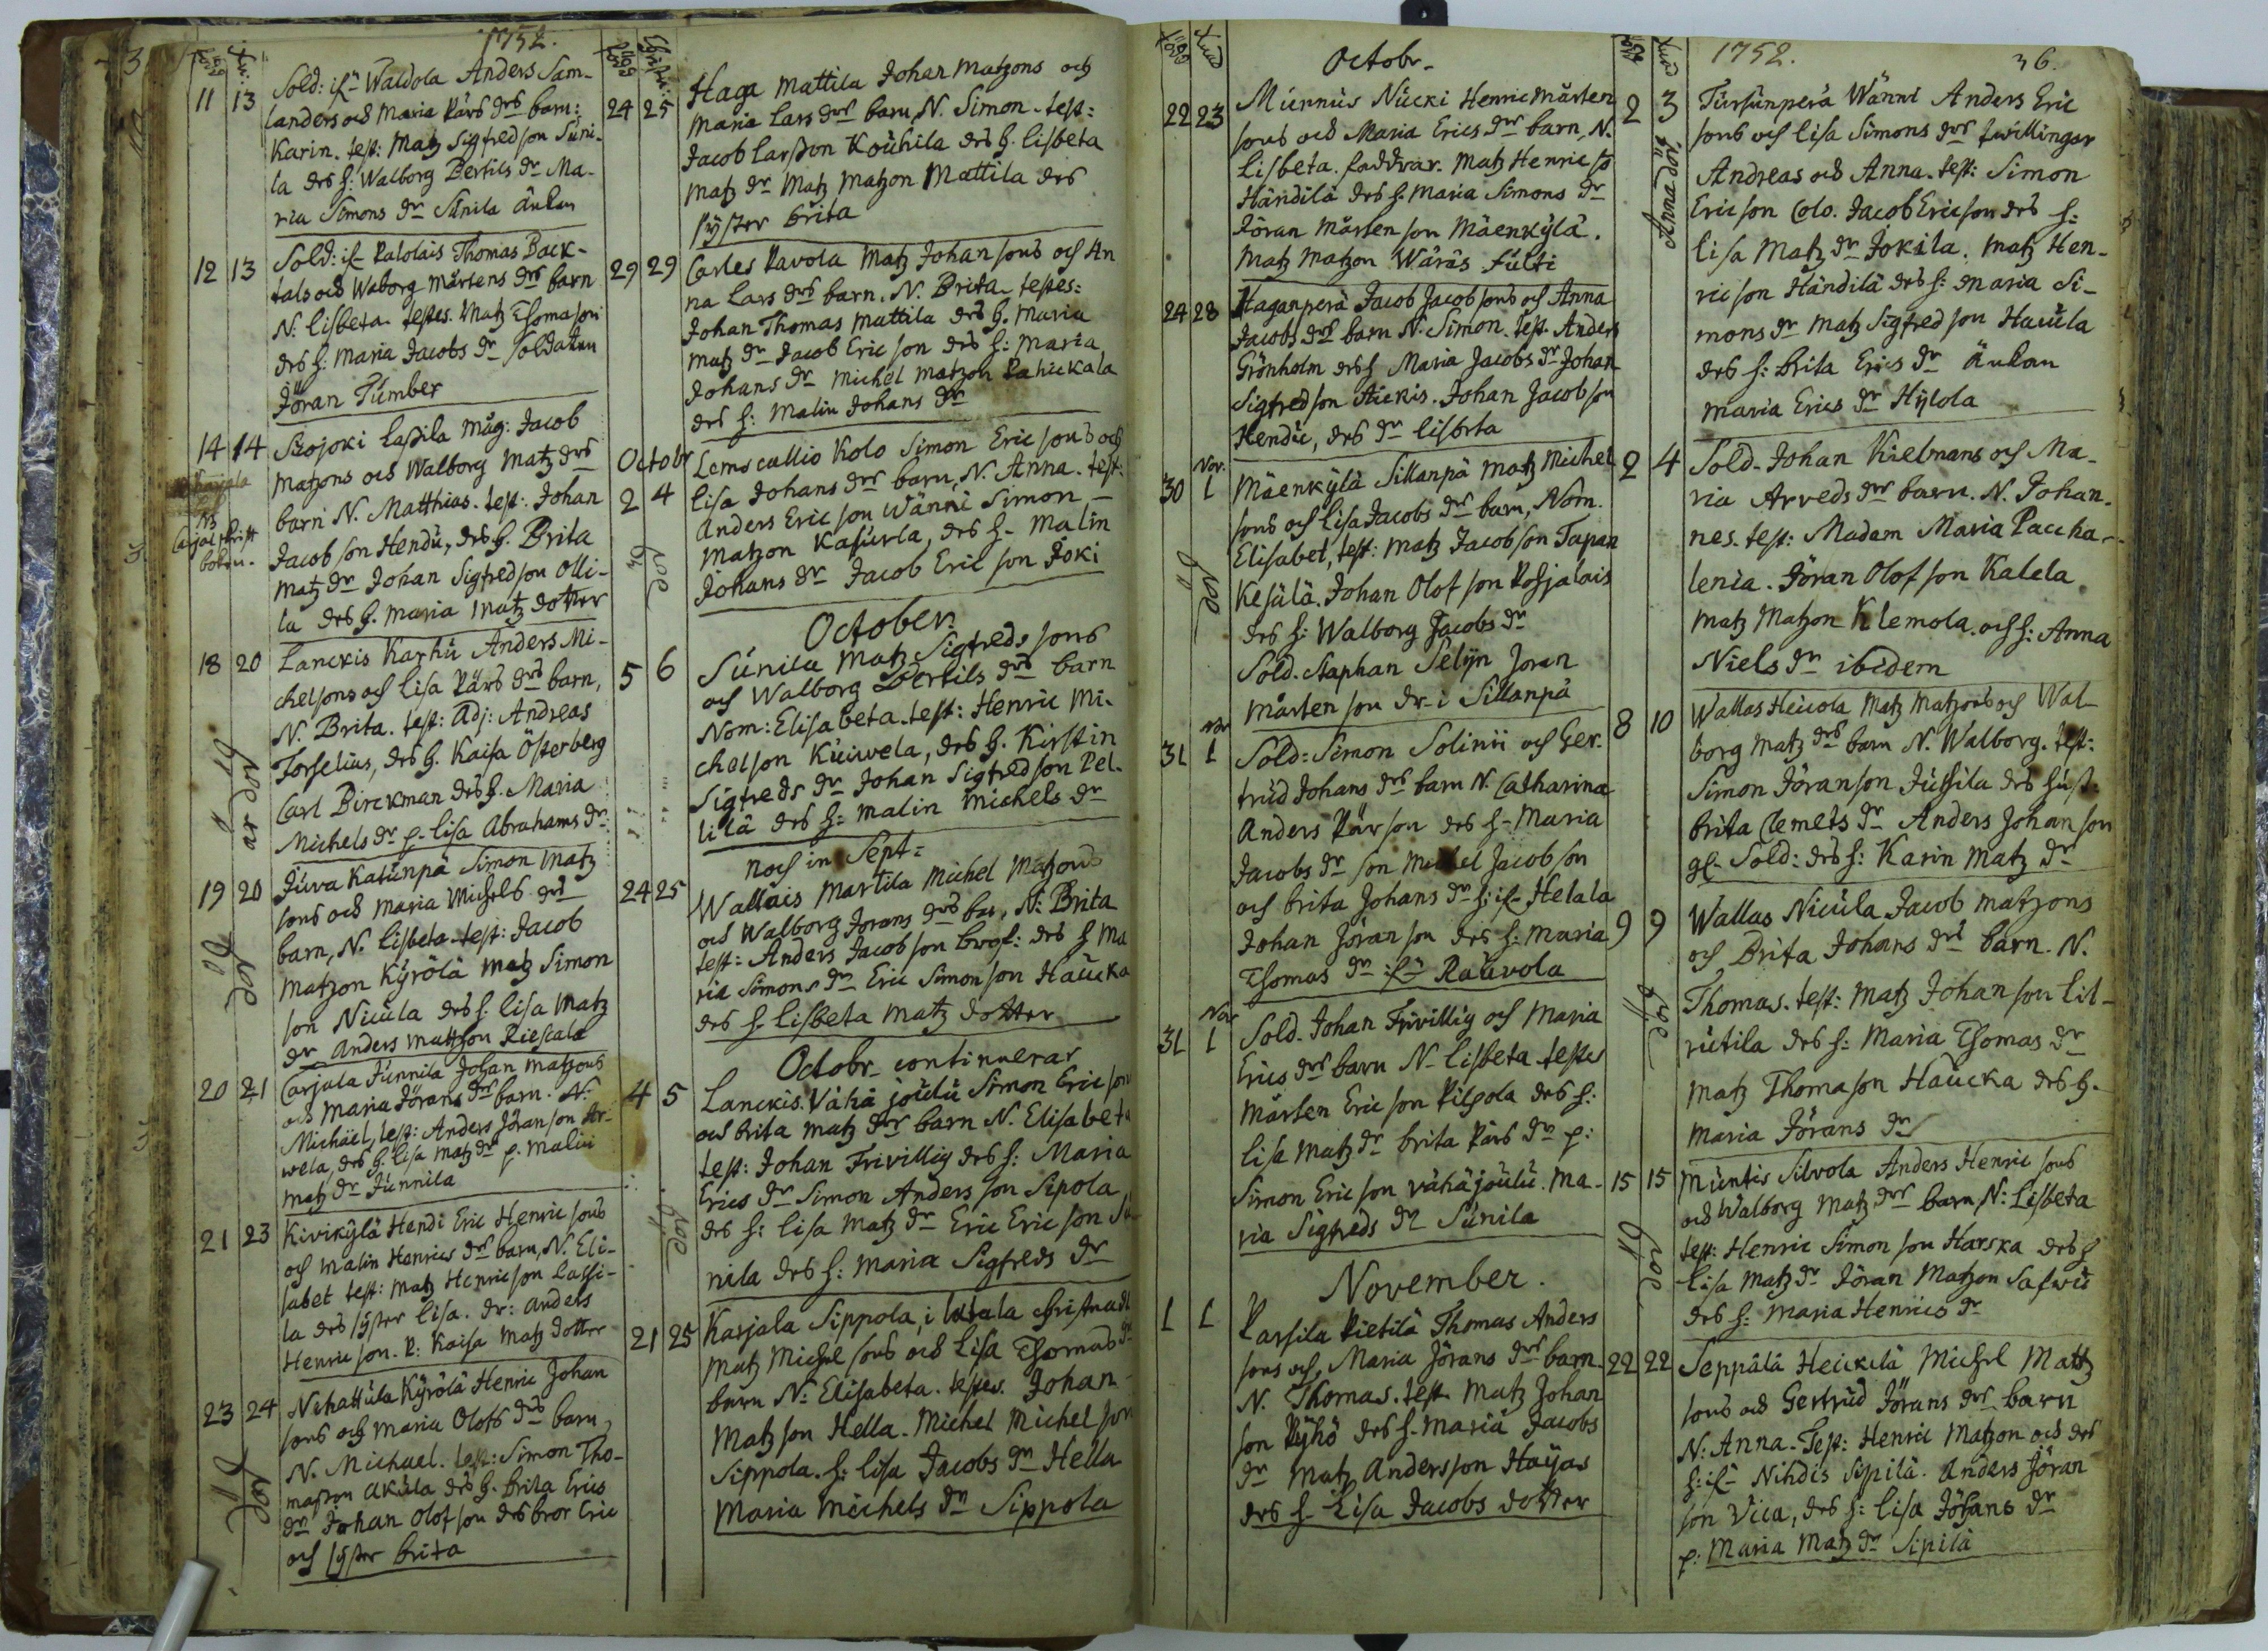 1752.
11 13 Sold: Waldola Anders Sam-
landers och Maria Pärs drs barn:
Karin. test: Matz Sigfredson Suni-
la drs h: Walborg Bertils dr Ma-
ria Simons dr Sunila änkan
12 13 Sold: Palolais Thomas Back-
tals och Waborg Mårtens drs barn
N. Lisbeta. testes. Matz Thomason
drs h: Maria Jacobs dr soldaten
Jöran Timber
14 14 Lassila måg: Jacob
Matzons och Walborg Matz drs
barn N. Matthias. test: Johan
Jacobson Hendu, drs h. Brita
Matz dr Johan Sigfredson Olli-
la drs h. Maria Matz dotter
18 20 Lanckis Karhu Anders Mi-
chelsons och Lisa Pärs drs barn,
N. Brita. test: Adj: Andreas
Forselius, drs h. Kaisa Österberg
Carl Birckman drs h. Maria
Michels dr p. Lisa Abrahams dr
19 20 Juva Katunpä Simon Matz
sons och Maria Michels drs
barn, N. Lisbeta. test: Jacob
Matzon Kyrölä Matz Simon
son Nicula drs h. Lisa Matz
dr Anders Mattson
20 21 Carjala Junnila Johan Matzons
och Maria Jörans drs barn. N.
Michäel, test: Anders Jöranson Ar-
wela, drs h. Lisa Matz dr p. Malin
Matz dr Junnila
21 23 Kivikylä Hendi Eric Henric sons
och Malin Henrics drs barn, N. Eli-
sabet test: Matz Henricson Lassi-
la drs syster Lisa. dr: Anders
Henricson. P: Kaisa Matz dotter
23 24 Nihattula Kyrölä Henric Johan
sons och Maria Olofs drs barn,
N. Michael. test: Simon Tho-
masson Akula drs h. Brita Erics
dr Johan Olofson drs bror Eric
och syster Brita
24 25 Haga Mattila Johan Matzons och
Maria Lars drs barn, N. Simon. test:
Jacob Larsson Kouhila drs h. Lisbeta
Matz dr Matz Matzon Mattila drs
syster Brita
29 29 Carles Pavola Matz Johansons och An
na Lars drs barn. N. Brita. testes:
Johan Thomas Mattila drs h. Maria
Matz dr Jacob Ericson drs h: Maria
Johans dr Michel Matzon Pahickala
drs h: Malin Johans dr
Octobr
2 4 Lemscallio Kolo Simon Ericsons och
Lisa Johans drs barn, N. Anna. test:
Anders Ericson Wänni Simon
Matzon Kasurla, drs h. Malin
Johans dr Jacob Ericson Joki
October.
5 6 Sunila Matz Sigfreds sons
och Walborg Bertils drs barn
Nom: Elisabeta. test: Henric Mi-
chelson Kuuvela, drs h. Kirstin
Sigfreds dr Johan Sigfredson Pel-
lilä drs h: Malin Michels dr
noch in Sept:
24 25 Wallais Martila Michel Matzons
och Walborg Jorans drs bar, N: Brita
test: Anders Jacobson drs h Ma
ria Simons dr Eric Simonson Haucka
drs h. Lisbeta Matz dotter
Octobr continuerar
4 5 Lanckis. Vähä joulu Simon Ericson
och Brita Matz drs barn N. Elisabeta
test: Johan Frivillig drs h: Maria
Erics dr Simon Anderson Sipola
drs h: Lisa Matz dr Eric Ericson Su
nila drs h: Maria Sigfreds dr
21 25 Karjala Sippola, i
Matz Michel sons och Lisa Thomas dr
barn N: Elisabeta. testes. Johan
Matzson Hella. Michel Michelson
Sippola. h: Lisa Jacobs dr Hella
Maria Michels dr Sippola
Octobr
22 23 Munnus Nucki Henric Mårten
sons och Maria Erics drs barn, N.
Lisbeta. faddrar. Matz Henric so
Händilä drs h: Maria Simons dr
Jöran Mårtenson Mäenkylä.
Matz Matzon Wäräs fulti
24 28 Haganperä Jacob Jacobsons och Anna
Jacobs drs barn N: Simon. test. Anders
Grönholm drs h Maria Jacobs dr Johan
Sigfredson Huckis. Johan Jacobson
Hendu, drs dr Lisbeta
Nov.
30 1 Mäenkylä Sillanpä Matz Michel
sons och Lisa Jacobs drs barn, Nom.
Elisabet, test: Matz Jacobson Tapan
Kesülä. Johan Olofson Pohjalais
drs h: Walborg Jacobs dr
Sold. Staphan Selijn Joran
Mårtenson dr i Sillanpä
Nov
31 1 Sold: Simon Solinii och Ger-
trud Johans drs barn N. Catharina
Anders Pärson drs h. Maria
Jacobs dr son Michel Jacobson
och Brita Johans dr Helala
Johan Jöranson drs h: Maria
Thomas dr Rauvola
Nov
31 1 Sold. Johan Frivillig och Maria
Erics drs barn N. Lisbeta testes
Mårten Ericson Pilpola drs h:
Lisa Matz dr Brita Pärs dr p:
Simon Ericson vähäjoulu. Ma-
ria Sigfreds dr Sunila
November.
1 1 Karsila Pietilä Thomas Anders
sons och Maria Jörans drs barn
N. Thomas. test. Matz Johan
son Pyhö drs h. Maria Jacobs
dr Matz Andersson Hayas
drs h. Lisa Jacobs dotter
1752. 36.
2 3 Tursunperä Wänni Anders Eric
sons och Lisa Simons drs twillingar
Andreas och Anna. test: Simon
Ericson Colo. Jacob Ericson drs h:
Lisa Matz dr Jokila. Matz Hen-
ricson Händilä drs h: Maria Si-
mons dr Matz Sigfredson Hauula
drs h: Brita Erics dr Änkan
Maria Erics dr Hylola
Anna död
2 4 Sold. Johan Kielmans och Ma-
ria Arveds drs barn. N. Johan-
nes. test: Madam Maria Paccha-
lenia. Jöran Olofson Kalela
Matz Matzon Klemola. och h: Anna
Niels dr ibidem
8 10 Wallas Heicola Matz Matzons och Wal
borg Matz drs barn N. Walborg. test:
Simon Jöranson Juhila drs hust:
Brita Clemets dr Anders Johanson
gl: Sold: drs h: Karin Matz dr
9 9 Wallas Nicula Jacob Matzons
och Brita Johans drs barn. N.
Thomas. test: Matz Johanson Lil-
rutila drs h: Maria Thomas dr
Matz Thomason Haucka drs h.
Maria Jörans dr
15 15 Muntis Silvola Anders Henric sons
och Walborg Matz drs barn, N: Lisbeta
test: Henric Simonson Harska drs h
Lisa Matz dr Jöran Matzon Safwu
drs h: Maria Henrics dr
22 22 Seppälä Heickilä Michel Mattz
sons och Gertrud Jörans drs barn
N: Anna. Test: Henric Matzon och drs
h: Nihdis Sipilä. Anders Jöran
son Vica, drs h: Lisa Johans dr
p: Maria Matz dr Sipilä